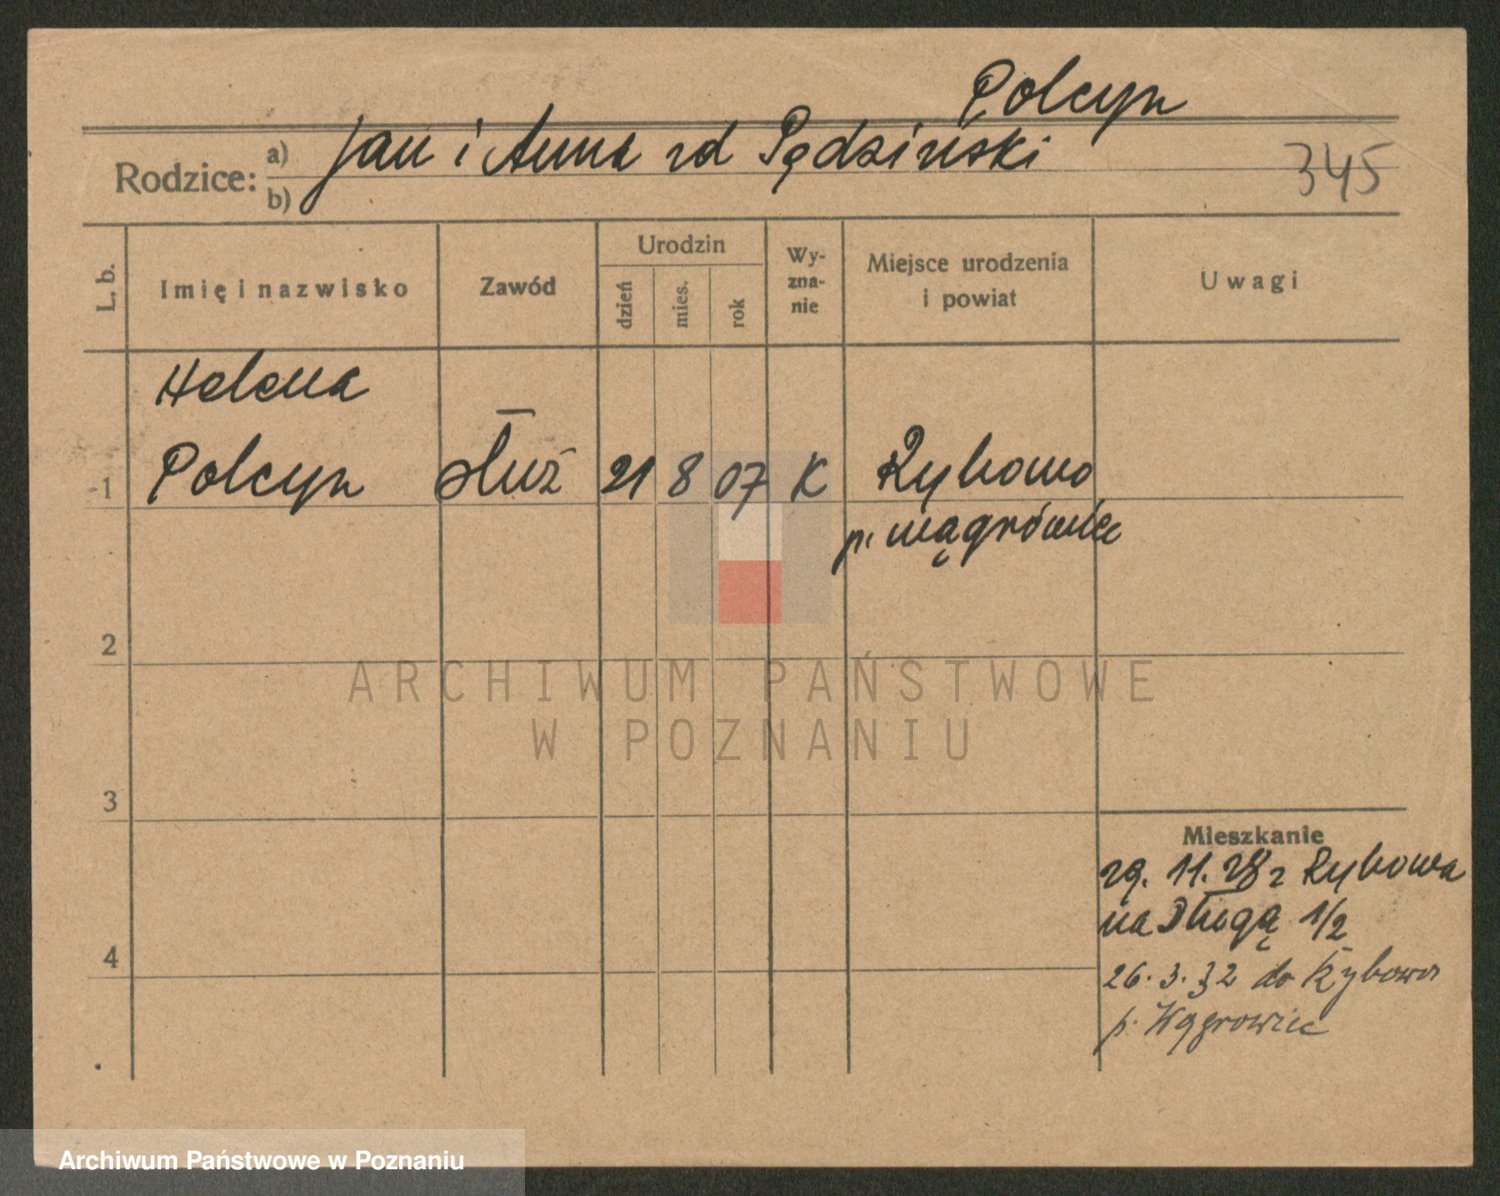 Polcyn
Rodzice: a) b) Jan i Anna zd Pędziński
345
L. b.
Imię i nazwisko
Zawód
Urodzin
dzień
mies.
rok
Wy-
zna-
nie
Miejsce urodzenia
i powiat
Uwagi
Helena
1 Polcyn służ 21 8 07 K Rybowo
p. wągrówiec
2
ARCHIWUM PAŃSTWOWE
W POZNANIU
3
Mieszkanie
29. 11. 28 z Rybowa
na Długą 1/2
4
26. 3. 32 do Rybowa
p. Wągrowiec
Archiwum Państwowe w Poznaniu